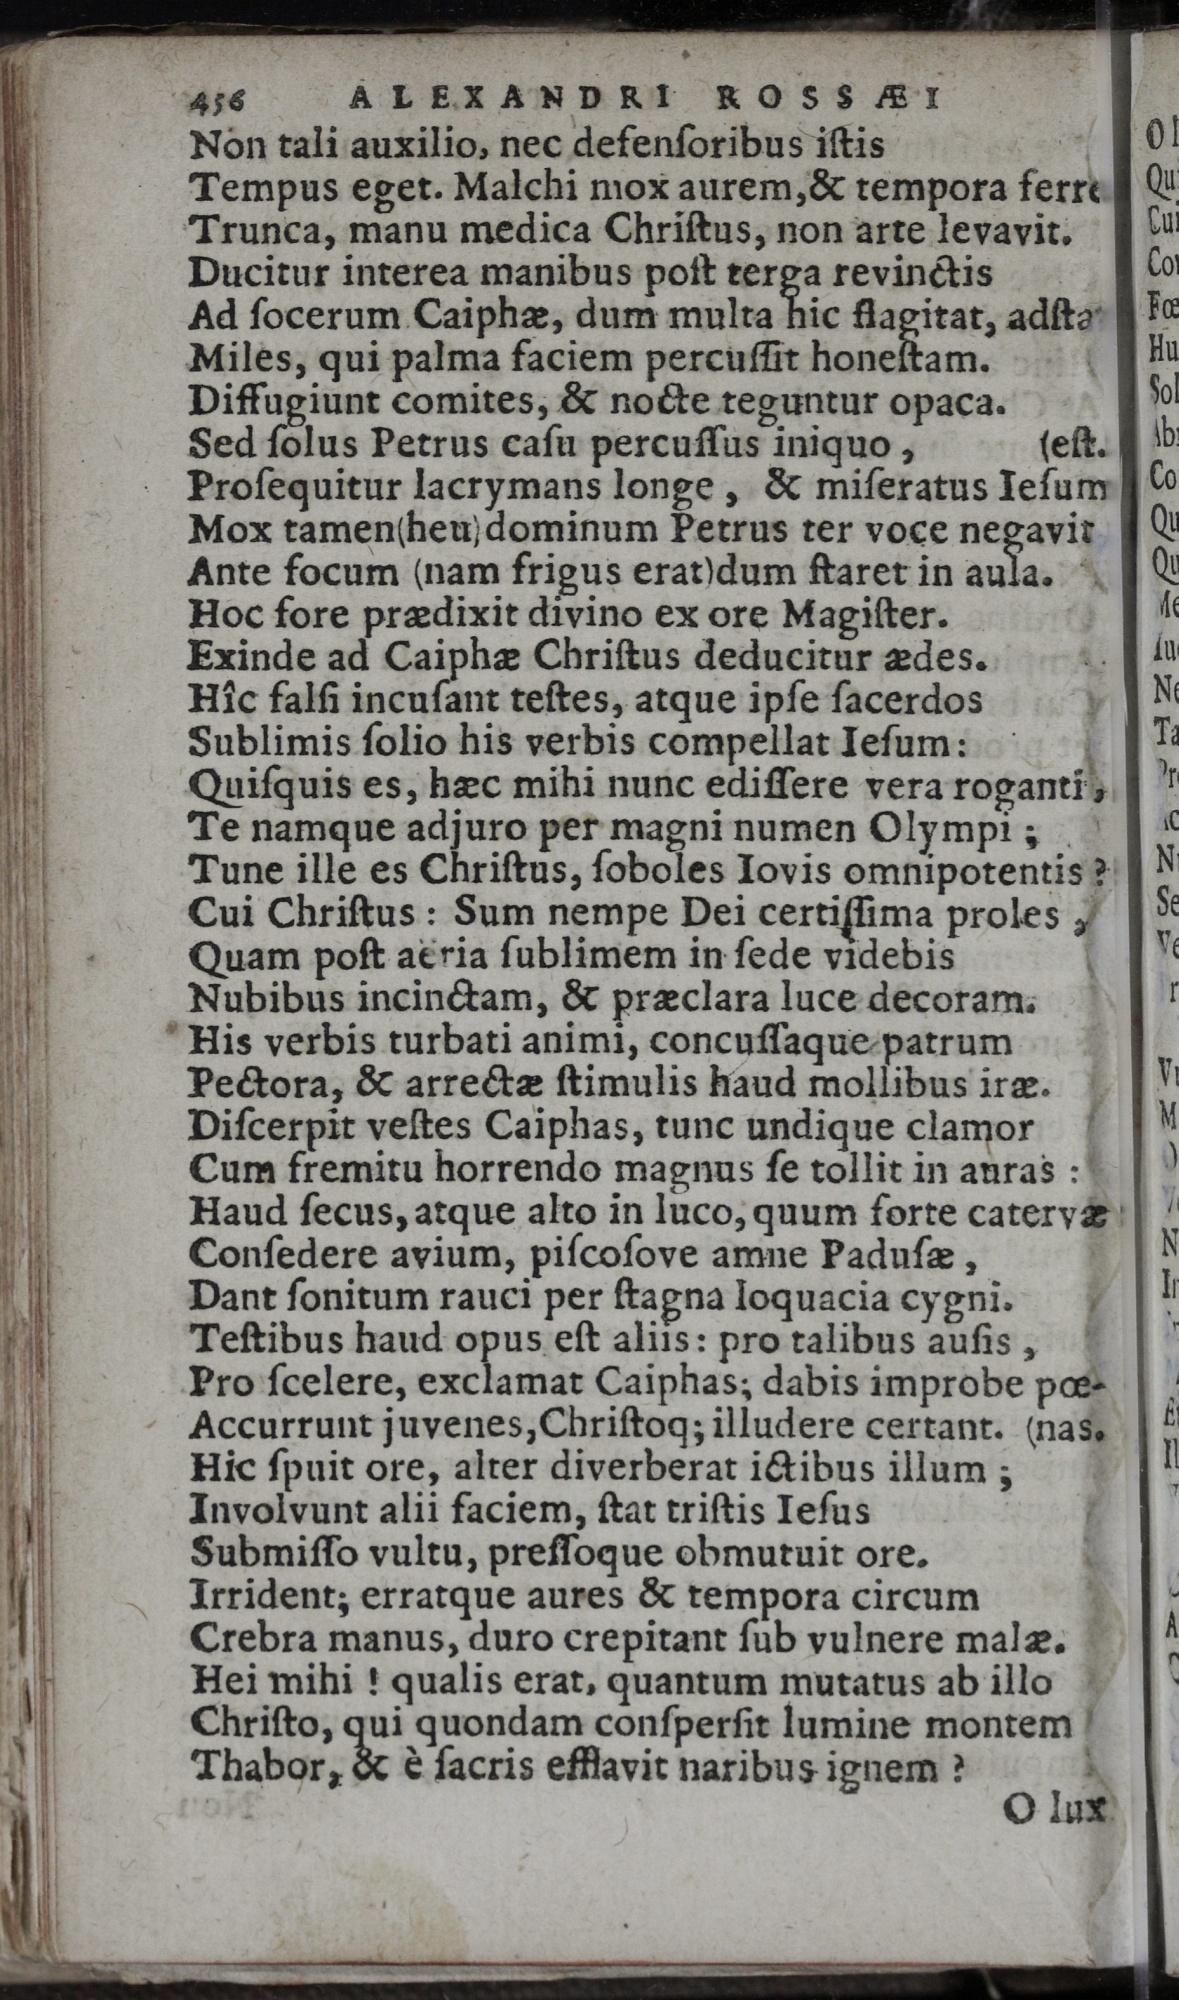 456 ALEXANDRI ROSSÆI
Non tali auxilio, nec defenſoribus iſtis
Tempus eget. Malchi mox aurem,& tempora ferre
Trunca, manu medica Chriſtus, non arte levavit.
Ducitur interea manibus poſt terga revinctis
Ad ſocerum Caiphæ, dum multa hic flagitat, adſta
Miles, qui palma faciem percuſſit honeſtam.
Diffugiunt comites, & nocte teguntur opaca.
Sed ſolus Petrus caſu percuſſus iniquo, (eſt.
Proſequitur lacrymans longe, & miſeratus Ieſum
Mox tamen(heu)dominum Petrus ter voce negavit
Ante focum (nam frigus erat)dum ſtaret in aula.
Hoc fore prædixit divino ex ore Magiſter.
Exinde ad Caiphæ Chriſtus deducitur ædes.
Hîc falſi incuſant teſtes, atque ipſe ſacerdos
Sublimis ſolio his verbis compellat Ieſum:
Quiſquis es, hæc mihi nunc ediſſere vera roganti,
Te namque adjuro per magni numen Olympi;
Tune ille es Chriſtus, ſoboles Iovis omnipotentis?
Cui Chriſtus: Sum nempe Dei certiſſima proles,
Quam poſt aeria ſublimem in ſede videbis
Nubibus incinctam, & præclara luce decoram.
His verbis turbati animi, concuſſaque patrum
Pectora, & arrectæ ſtimulis haud mollibus iræ.
Diſcerpit veſtes Caiphas, tunc undique clamor
Cum fremitu horrendo magnus ſe tollit in auras:
Haud ſecus, atque alto in luco, quum forte catervæ
Conſedere avium, piſcoſove amne Paduſæ,
Dant ſonitum rauci per ſtagna loquacia cygni.
Teſtibus haud opus eſt aliis: pro talibus auſis,
Pro ſcelere, exclamat Caiphas; dabis improbe pœ-
Accurrunt juvenes,Chriſtoq; illudere certant. (nas.
Hic ſpuit ore, alter diverberat ictibus illum;
Involvunt alii faciem, ſtat triſtis Ieſus
Submiſſo vultu, preſſoque obmutuit ore.
Irrident; erratque aures & tempora circum
Crebra manus, duro crepitant ſub vulnere malæ.
Hei mihi! qualis erat, quantum mutatus ab illo
Chriſto, qui quondam conſperſit lumine montem
Thabor, & è ſacris efflavit naribus ignem?
O lux